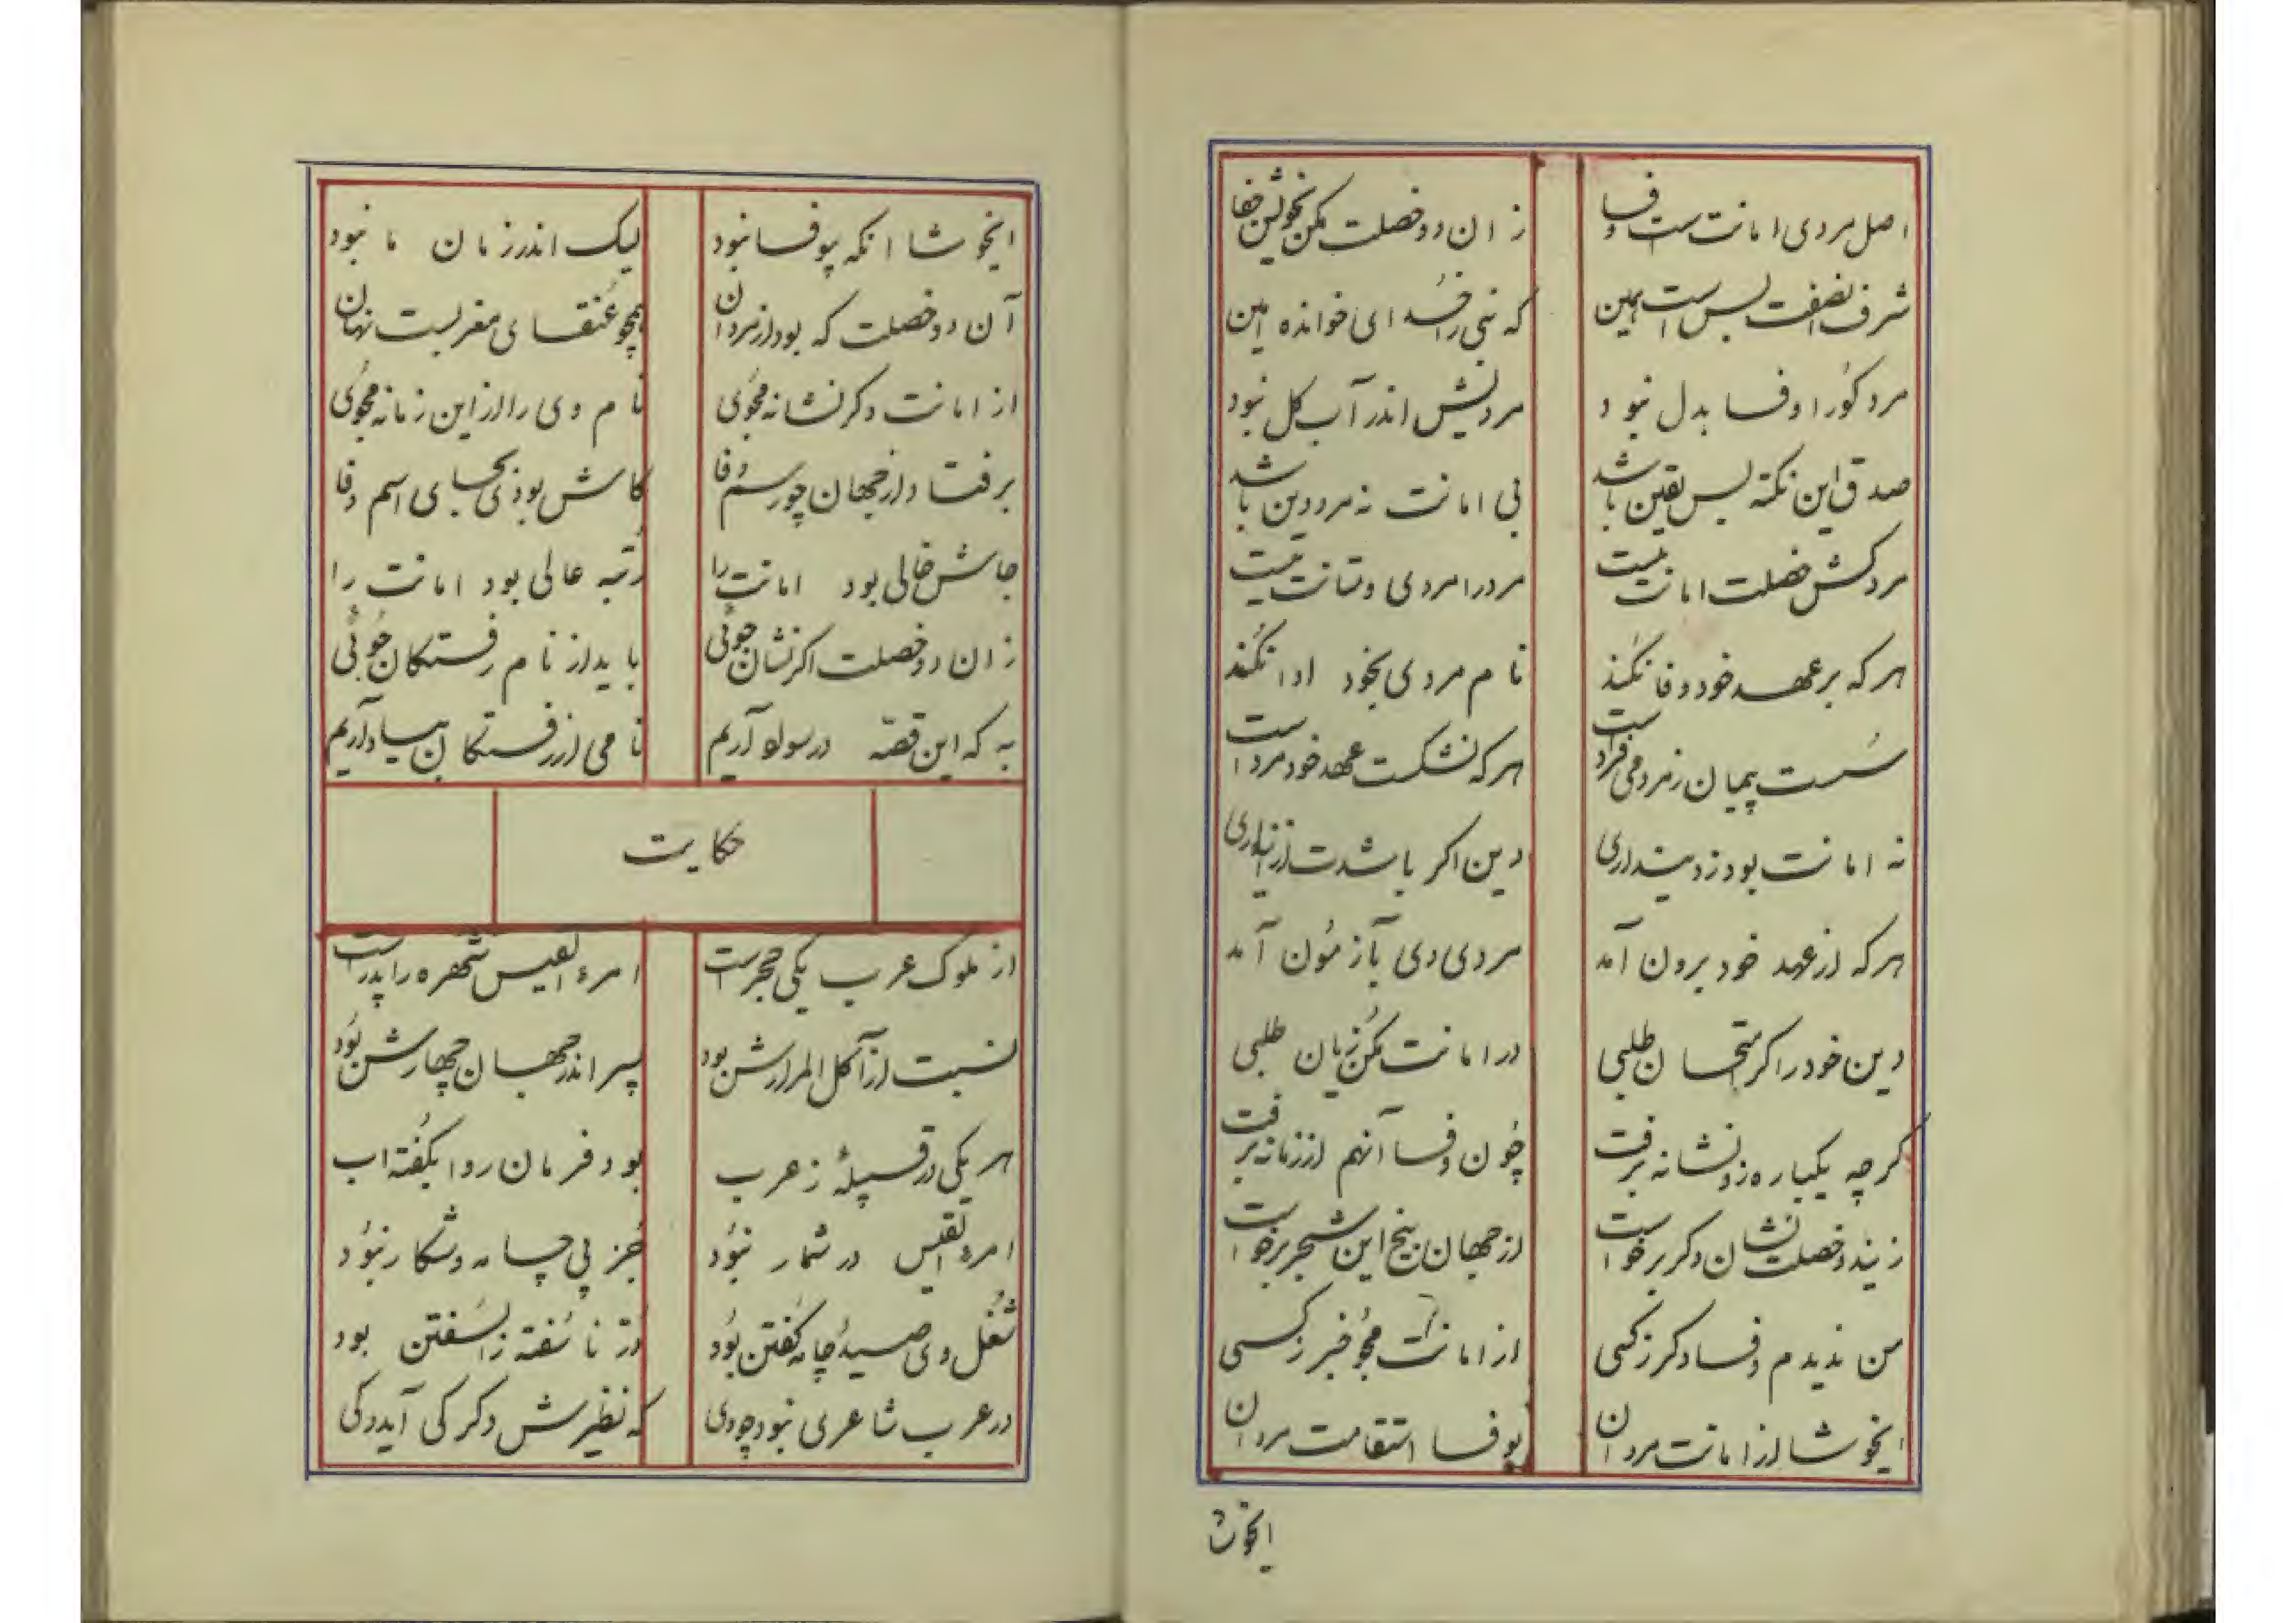 اصل مردی امانت ست و وفا زان دو خصلت مکن بخویش جفا
شرف اینصفت بس است همین که نبی را خدای خوانده امین
مرد کورا وفا بدل نبود مردیش اندر آب گل نبود
صدق این نکته بس یقین باشد بی امانت نه مرد دین باشد
مرد کش خصلت امانت نیست مرد را مردی و متانت نیست
هر که بر عهد خود وفا نکند نام مردی بخود ادا نکند
سست پیمان ز مردمی فرد است هر که نشکست عهد خود مرد است
نه امانت بود ز دینداری دین اکر باشدت
هر که از عهد خود برون آمد مردی وی بآزمون آمد
دین خود را اکر طلبی در امانت مکن زیان طلبی
کرچه یکباره زو نشانه برفت چون وفا آنهم از زمانه برفت
زیندو خصلت نشان دکر برخواست از جهان بیخ این شجر برخواست
من ندیدم وفا دکر ز کسی از امانت مجو خبر ز کسی
ایخوشا از امانت مردان بوفا استقامت مردان
ایخوشا
ایخوشا انکه بیوفا نبود لیک اندر زمان ما نبود
آن دو خصلت که بود از مردان همچو عنقای مغربست نهان
از امانت دکر نشانه مجوی نام وی را از این زمانه مجوی
برفتاد از جهان چو رسم وفا کاش بودی بجای اسم وفا
جاش خالی بود امانت را رتبه عالی بود امانت را
زان دو خصلت اکر نشان جوئی باید از نام رفتکان جوئی
به که این قصه در سواد آریم نامی از رفتکان بیاد آریم
حکایت
از ملوک عرب یکی حجر است امرء القیس شهره را پدر است
نسبت از آکل المرارش بود پسر اندر جهان چهارش بود
هر یکی در قبیلهٔ ز عرب بود فرمان روا بکفته اب
امرء القیس در شمار نبود جز پی چامه و شکار نبود
شغل وی صید و چامه کفتن بود در ناسفته را سفتن بود
در عرب شاعری نبود چو وی که نظیرش دکر کی آید و کی